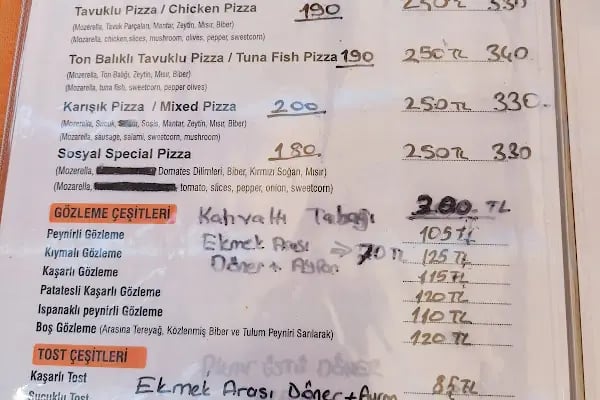 Tavuklu Pizza / Chicken Pizza 190 250TL 330
(Mozerella, Tavuk Parçaları, Mantar, Zeytin, Mısır, Biber)
(Mozarella, chicken,slices, mushroom, olives, pepper, sweetcorn)
Ton Balıklı Tavuklu Pizza / Tuna Fish Pizza 190 250TL 340
(Mozerella, Ton Balığı, Zeytin, Mısır, Biber)
(Mozarella, tuna fish, sweetcorn, pepper olives)
Karışık Pizza / Mixed Pizza 200 250TL 330
(Mozerella, Sucuk, Sosis, Mantar, Zeytin, Mısır, Biber)
(Mozarella, sausage, salami, sweetcorn, mushroom)
Sosyal Special Pizza 180 250TL 330
(Mozerella, Domates Dilimleri, Biber, Kırmızı Soğan, Mısır)
(Mozarella, tomato, slices, pepper, onion, sweetcorn)
GÖZLEME ÇEŞİTLERİ Kahvaltı Tabağı TL
Peynirli Gözleme Ekmek Arası 105TL
Kıymalı Gözleme Döner + Ayran 70TL 125TL
Kaşarlı Gözleme 115TL
Patatesli Kaşarlı Gözleme 120TL
Ispanaklı peynirli Gözleme 110TL
Boş Gözleme (Arasına Tereyağ, Közlenmiş Biber ve Tulum Peyniri Sarılarak) 120TL
TOST ÇEŞİTLERİ DÖNER
Kaşarlı Tost 85TL
Sucuklu Tost Ekmek Arası Döner+Ayran